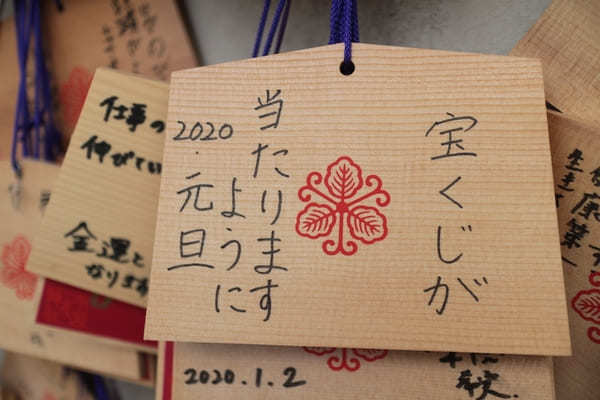 宝くじが
当たります
ように
2020.元旦
仕事の
伸びてい
金運と
なります
2020.1.2